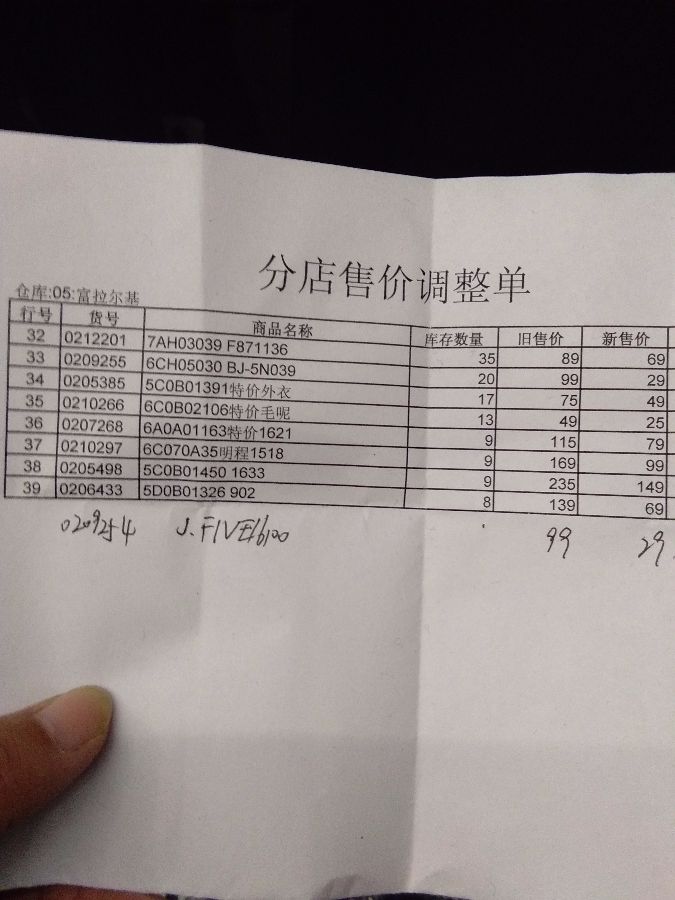 分店售价调整单
仓库:05:富拉尔基
行号 货号 商品名称 库存数量 旧售价 新售价
32 0212201 7AH03039 F871136 35 89 69
33 0209255 6CH05030 BJ-5N039 20 99 29
34 0205385 5C0B01391特价外衣 17 75 49
35 0210266 6C0B02106特价毛呢 13 49 25
36 0207268 6A0A01163特价1621 9 115 79
37 0210297 6C070A35明程1518 9 169 99
38 0205498 5C0B01450 1633 9 235 149
39 0206433 5D0B01326 902 8 139 69
0209254 J.FIVE16100 99 29